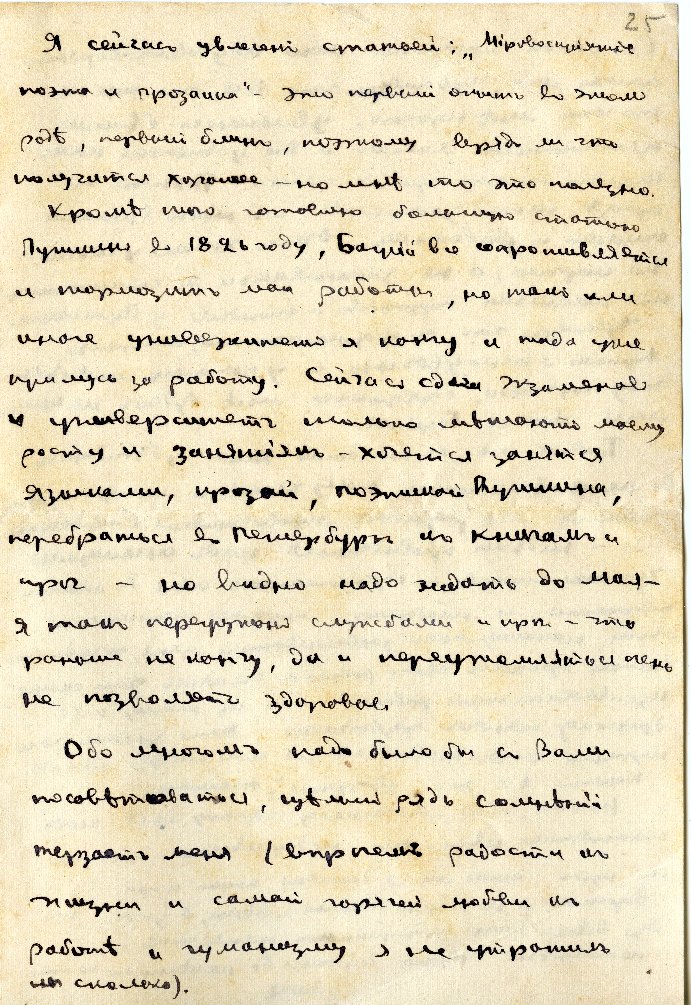 25
Я сейчасъ увлеченъ статьей: „Мiровоспрiятiе
поэта и прозаика" – это первый опытъ въ этомъ
родѣ, первый блинъ, поэтому врядъ ли что
получится хорошее – но мнѣ то это полезно.
Кромѣ того готовлю большую статью
Пушкинъ въ 1826 году, все сопротивляется
и тормозитъ мои работы, но такъ или
иначе университетъ я кончу и тогда уже
примусь за работу. Сейчасъ сдача экзаменов
и университетъ только мѣшаютъ моему
росту и занятiямъ – хочется заняться
языками, прозой, поэтикой Пушкина,
перебраться въ Петербургъ къ книгамъ и
проч – но видно надо ждать до мая –
я такъ перегруженъ службами и проч – что
раньше не кончу, да и переутомляться очень
не позволяетъ здоровье.
Обо многомъ надо было бы съ Вами
посовѣтоваться, цѣлый рядъ сомнѣнiй
терзаетъ меня (впрочемъ радости къ
жизни и самой горячей любви къ
работѣ и гуманизму я не утратилъ
нисколько).